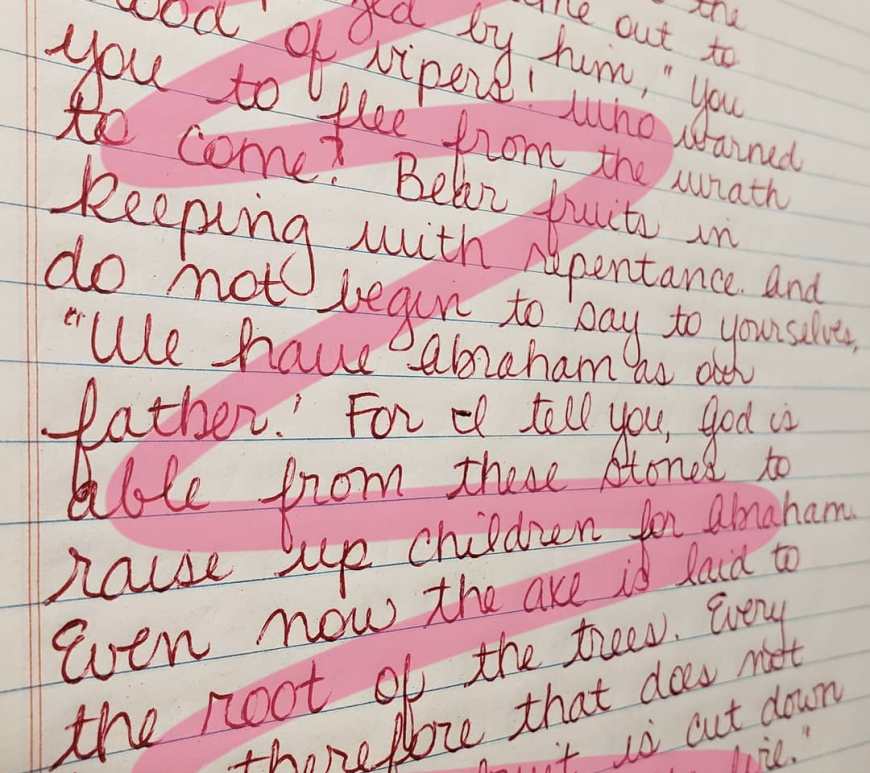 the
out to
by him, "You
of vipers! Who warned
you to flee from the wrath
to come? Bear fruits in
keeping with repentance. And
do not begin to say to yourselves,
"'We have Abraham as our
father.' For I tell you, God is
able from these stones to
raise up children for Abraham.
Even now the axe is laid to
the root of the trees. Every
therefore that does not
is cut down